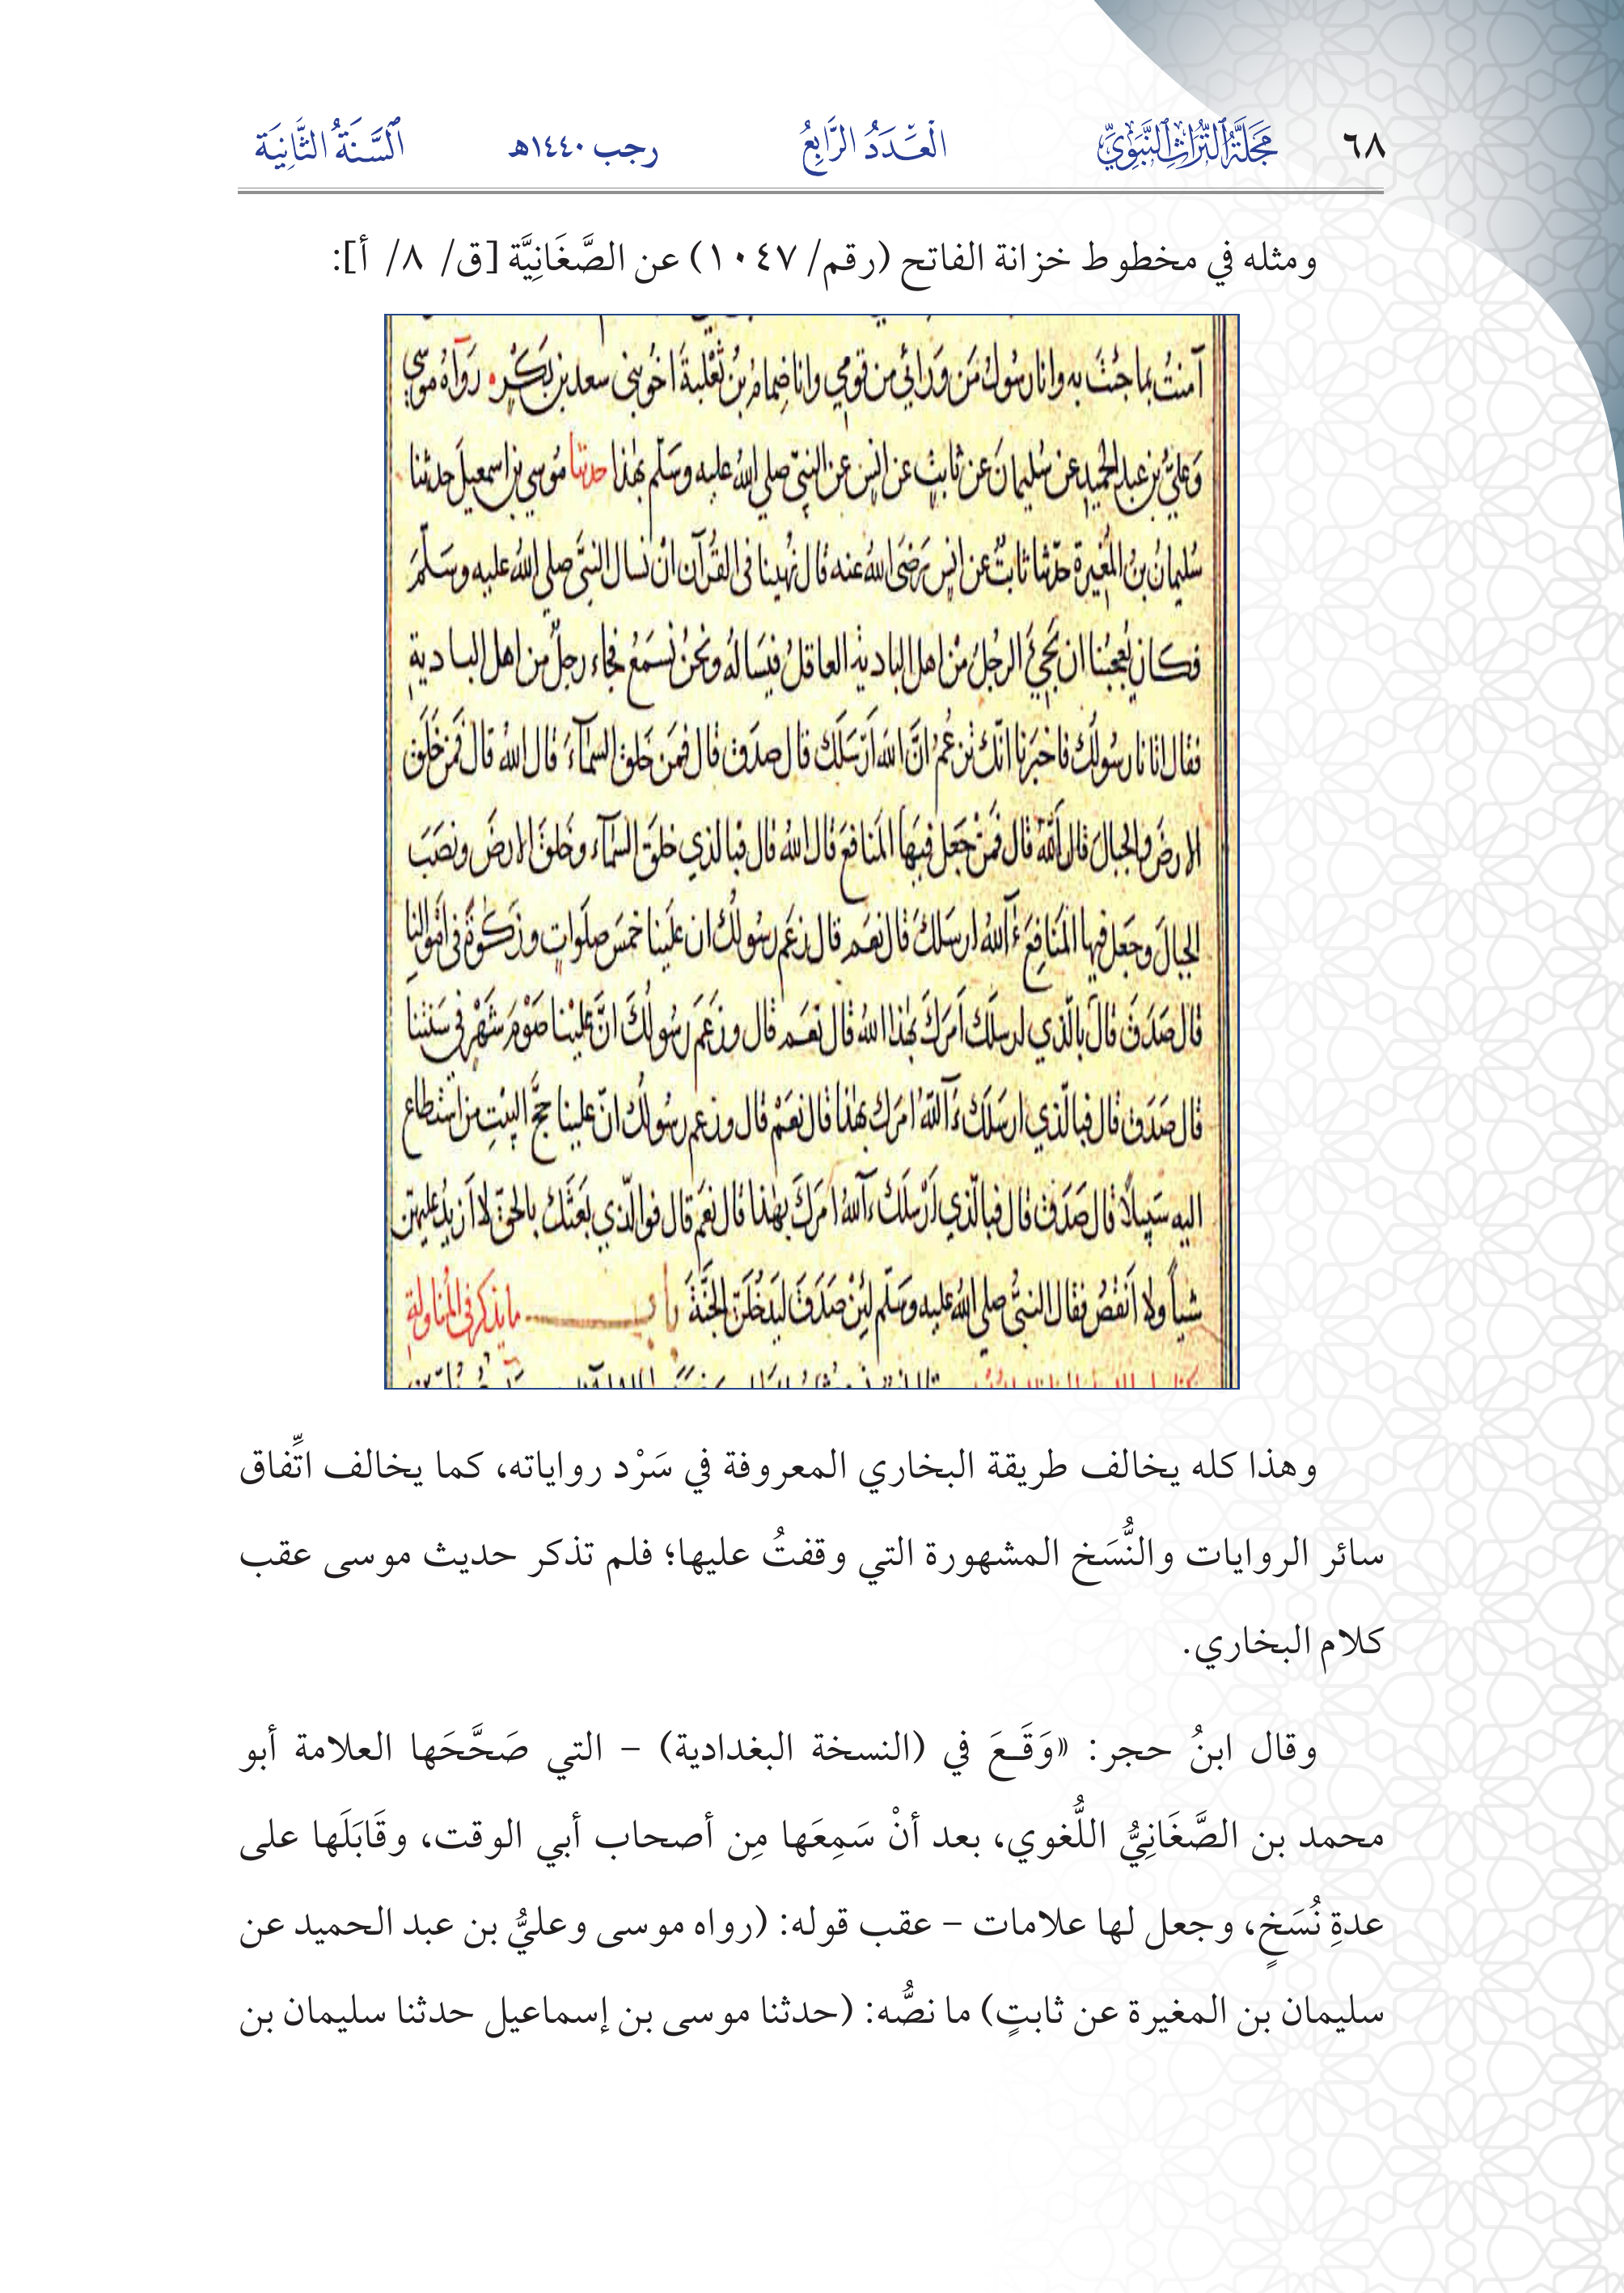 ٦٨ مَجَلَّةُ التُّرَاثِ النَّبَوِيِّ الْعَدَدُ الرَّابِعُ رجب ١٤٤٠هـ السَّنَةُ الثَّانِيَة
ومثله في مخطوط خزانة الفاتح (رقم/ ١٠٤٧) عن الصَّغَانِيَّة [ق/ ٨/ أ]:
آمنتُ بما جئتَ به وانا رسُولُ مَن وَرَائي من قومي وانا ضِمامُ بنُ ثَعْلبةَ اخُو بني سعد بن بَكْرٍ رَوَاهُ موسي
وَعليُّ بن عبد الحميدِ عن سُليمانَ عن ثابتٍ عن انسٍ عن النبيّ صلي اللهُ عليه وسَلّم بهٰذا حدثنا مُوسي بن اسمعيلَ حدثنا
سُليمانُ بنُ المُغيرة حدّثنا ثابتٌ عن انسٍ رَضيَ اللهُ عنه قال نُهينا في القُرآن انْ نسال النبيَّ صلي اللهُ عليه وسَلّمَ
فكان يُعجبُنا ان يَجيَ الرجلُ مْن اهل البادية العاقلُ فيَسالهُ ونحنُ نَسمَعُ فجاء رجلٌ من اهل البادية
فقال اتانا رسُولُك فاخبَرنا انّك تزعُمُ انَّ اللهَ أرْسَلَك قال صدَق قال فمَن خَلق السمَآءَ قال اللهُ قال فمَن خَلَق
الارضَ والجبالَ قال اللهُ قال فَمَنْ جَعَل فيهَا المَنافعَ قال اللهُ قال فبالذي خلَق السمَآء وخَلقَ الارضَ ونصَبَ
الجبالَ وجعَل فيها المَنَافِعَ ءَآللهُ ارسَلكَ قال نعَم قال زعَم رسُولُك ان علَينا خمسَ صلَواتٍ وزَكٰوةً في امَوالنا
قال صَدَقَ قالَ بالّذي ارسلَك اَمَركَ بهٰذا اللهُ قال نعَم قال وزعَم رسُولُكَ انَّ علَيْنا صَوْمَ شَهْرٍ في سَنتنا
قال صَدَق قال فبالّذي ارسَلَك ءَآللّهُ امرَك بهٰذا قال نعَمْ قال وزعم رسُولُك انّ علينا حَجَّ البيْتِ من استطاع
اليه سَبيلاً قال صَدَق قال فبالّذي اَرْسلَكَ ءآللهُ امرَكَ بهٰذا قال نعَم قال فوالّذي بعَثَك بالحقّ لا اَزيدُ عليهنّ
شياً ولا اَنقصُ فقال النبيُّ صلي اللهُ عليه وسَلّم لئنْ صَدَقَ لَيَدخُلَنّ الجَنَّةَ باب ما يذكر في المُناولة
وهذا كله يخالف طريقة البخاري المعروفة في سَرْد رواياته، كما يخالف اتِّفاق
سائر الروايات والنُّسَخ المشهورة التي وقفتُ عليها؛ فلم تذكر حديث موسى عقب
كلام البخاري.
وقال ابنُ حجر: «وَقَـعَ في (النسخة البغدادية) – التي صَحَّحَها العلامة أبو
محمد بن الصَّغَانِيُّ اللُّغوي، بعد أنْ سَمِعَها مِن أصحاب أبي الوقت، وقَابَلَها على
عدةِ نُسَخٍ، وجعل لها علامات – عقب قوله: (رواه موسى وعليُّ بن عبد الحميد عن
سليمان بن المغيرة عن ثابتٍ) ما نصُّه: (حدثنا موسى بن إسماعيل حدثنا سليمان بن